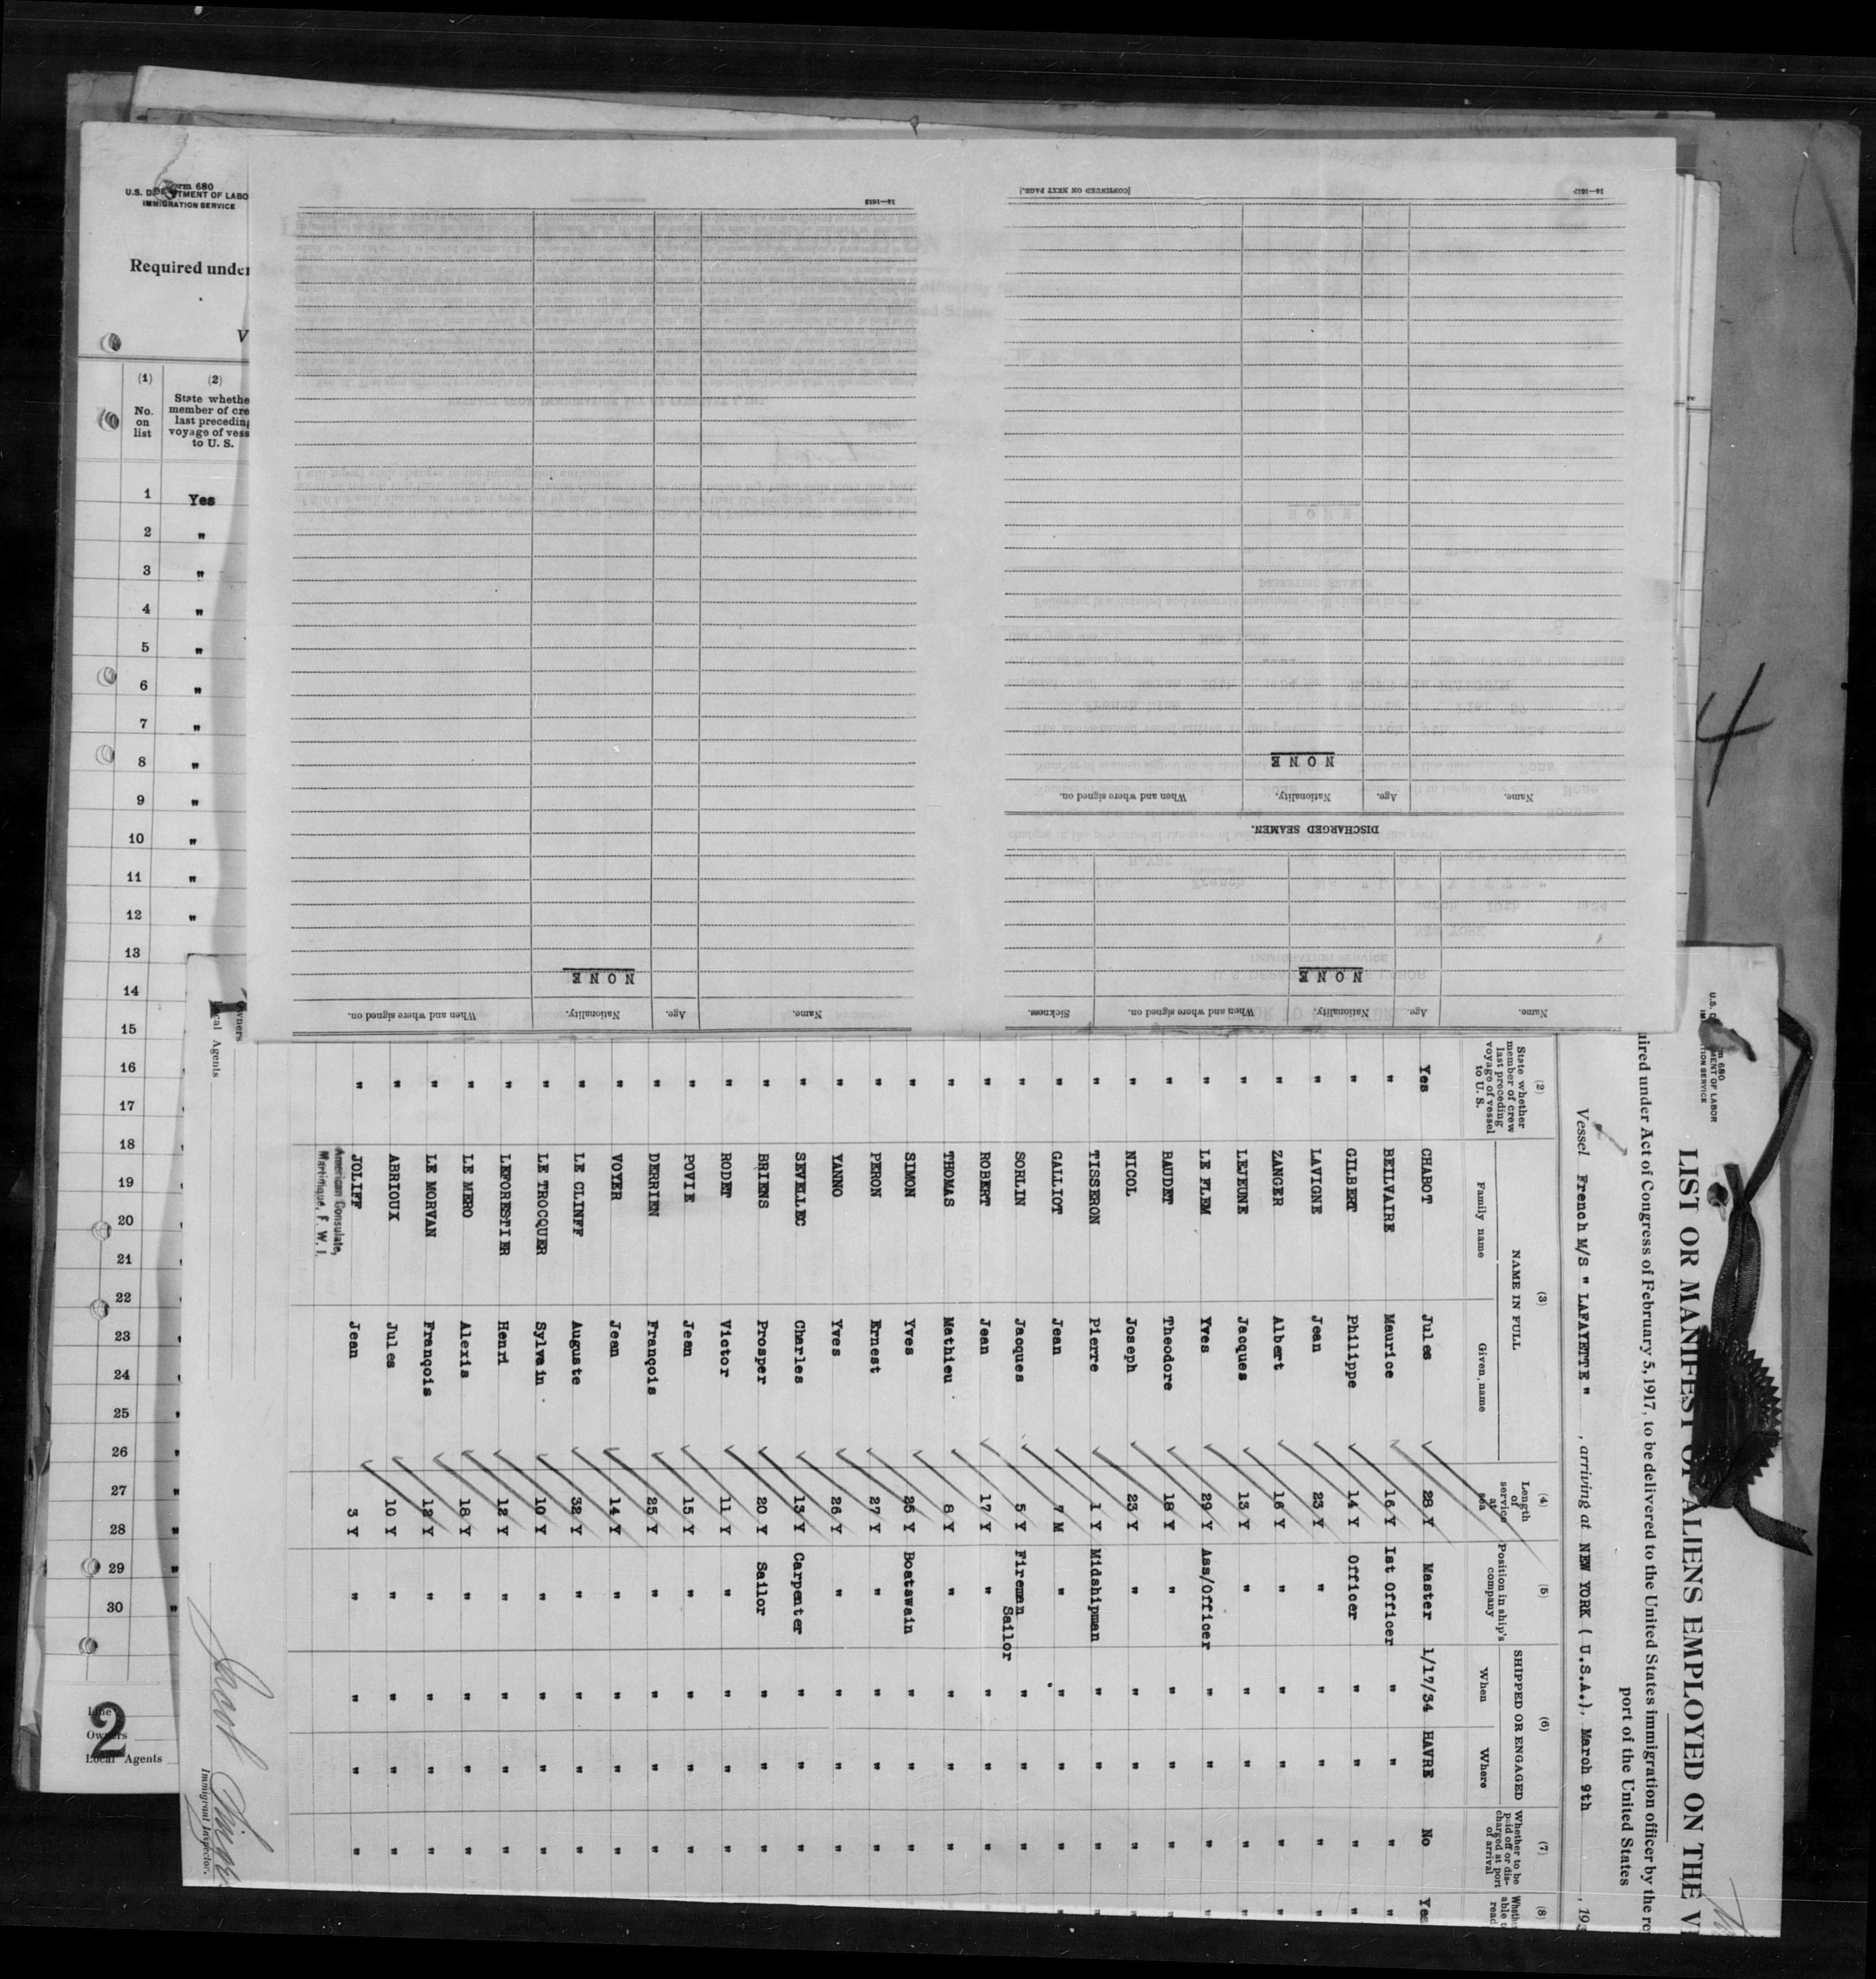 Form 680
U.S. DEPARTMENT OF LABO
IMMIGRATION SERVICE
Required under
V
(1) (2)
No. on list
State whethe
member of cre
last preceding
voyage of vess
to U. S.
1 Yes
2 "
3 "
4 "
5 "
6 "
7 "
8 "
9 "
10 "
11 "
12 "
13
14
15
16
17
18
19
20
21
22
23
24
25 "
26 "
27 "
28 "
29 "
30 "
Line
Owners
Local Agents
2
14—1613
[CONTINUED ON NEXT PAGE.]
14—1613
Name. Age. Nationality. When and where signed on.
NONE
DISCHARGED SEAMEN.
Name. Age. Nationality. When and where signed on.
NONE
Name. Age. Nationality. When and where signed on. Sickness.
NONE
4
U.S. D
m 680
MENT OF LABOR
TION SERVICE
LIST OR MANIFEST OF ALIENS EMPLOYED ON THE VE
uired under Act of Congress of February 5, 1917, to be delivered to the United States immigration officer by the re
port of the United States
Vessel French M/S " LAFAYETTE " , arriving at NEW YORK ( U.S.A.), March 9th , 193
(2) (3) (4) (5) (6) (7) (8)
State whether member of crew last preceding voyage of vessel to U. S.
NAME IN FULL
Family name Given name
Length of service at sea
Position in ship's company
SHIPPED OR ENGAGED
When Where
Whether to be paid off or discharged at port of arrival
Wheth able t read
Yes CHABOT Jules 28 Y Master 1/17/34 HAVRE No Yes
" BELVAIRE Maurice 16 Y 1st Officer " " " "
" GILBERT Philippe 14 Y Officer " " " "
" LAVIGNE Jean 23 Y " " " " "
" ZANGER Albert 16 Y " " " " "
" LEJEUNE Jacques 13 Y " " " " "
" LE FLEM Yves 29 Y Ass/Officer " " " "
" BAUDET Theodore 18 Y " " " " "
" NICOL Joseph 23 Y " " " " "
" TISSERON Pierre 1 Y Midshipman " " " "
" GALLIOT Jean 7 M " " " " "
" SORLIN Jacques 5 Y Fireman " " "
" ROBERT Jean 17 Y " Sailor " " "
" THOMAS Mathieu 8 Y " " " "
" SIMON Yves 25 Y Boatswain " " "
" PERON Ernest 27 Y " " " "
" YANNO Yves 26 Y " " " "
" SEVELLEC Charles 13 Y Carpenter " " "
" BRIENS Prosper 20 Y Sailor " " "
" RODET Victor 11 Y " " " "
" POVIE Jean 15 Y " " " "
" DERRIEN François 25 Y " " " "
" VOYER Jean 14 Y " " " "
" LE CLINFF Auguste 32 Y " " " "
" LE TROCQUER Sylvain 10 Y " " " "
" LEFORESTIER Henri 12 Y " " " "
" LE MERO Alexis 18 Y " " " "
" LE MORVAN François 12 Y " " " "
" ABRIOUX Jules 10 Y " " " "
" JOLIFF Jean 3 Y " " " "
American Consulate,
Martinique, F. W. I.
Owners
Local Agents
Immigrant Inspector.